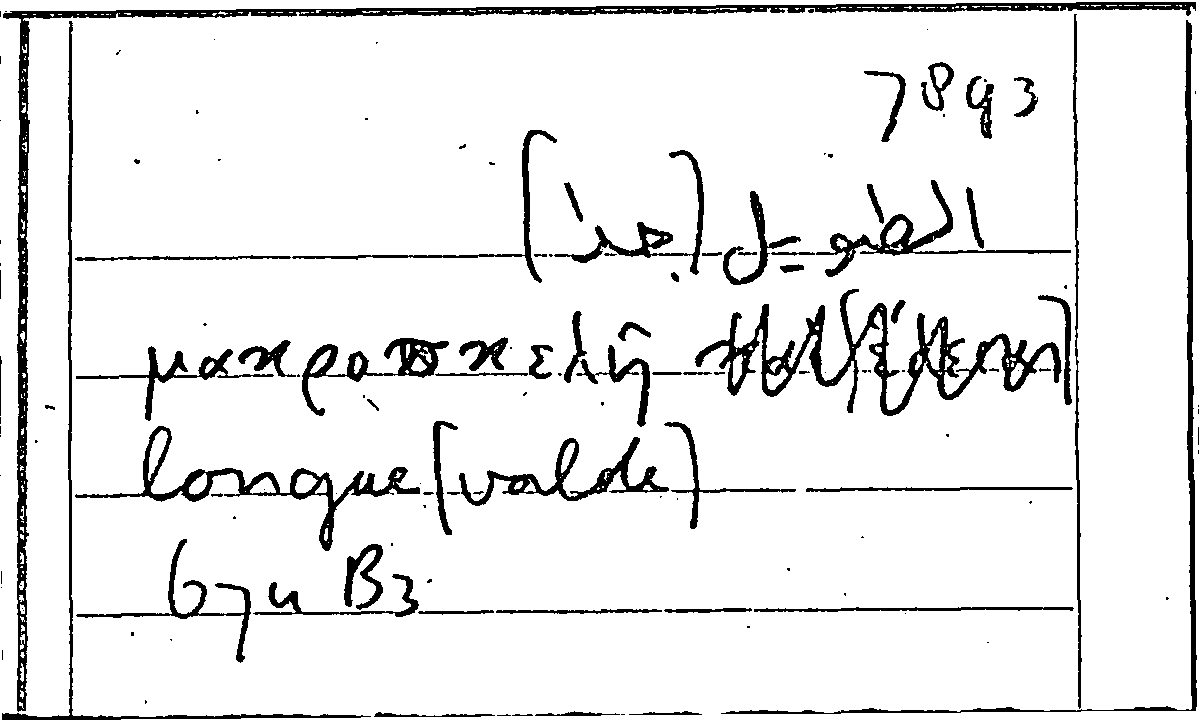 7893
الطويل [جدًا]
μακροσκελῆ
longue [valde]
674 B3